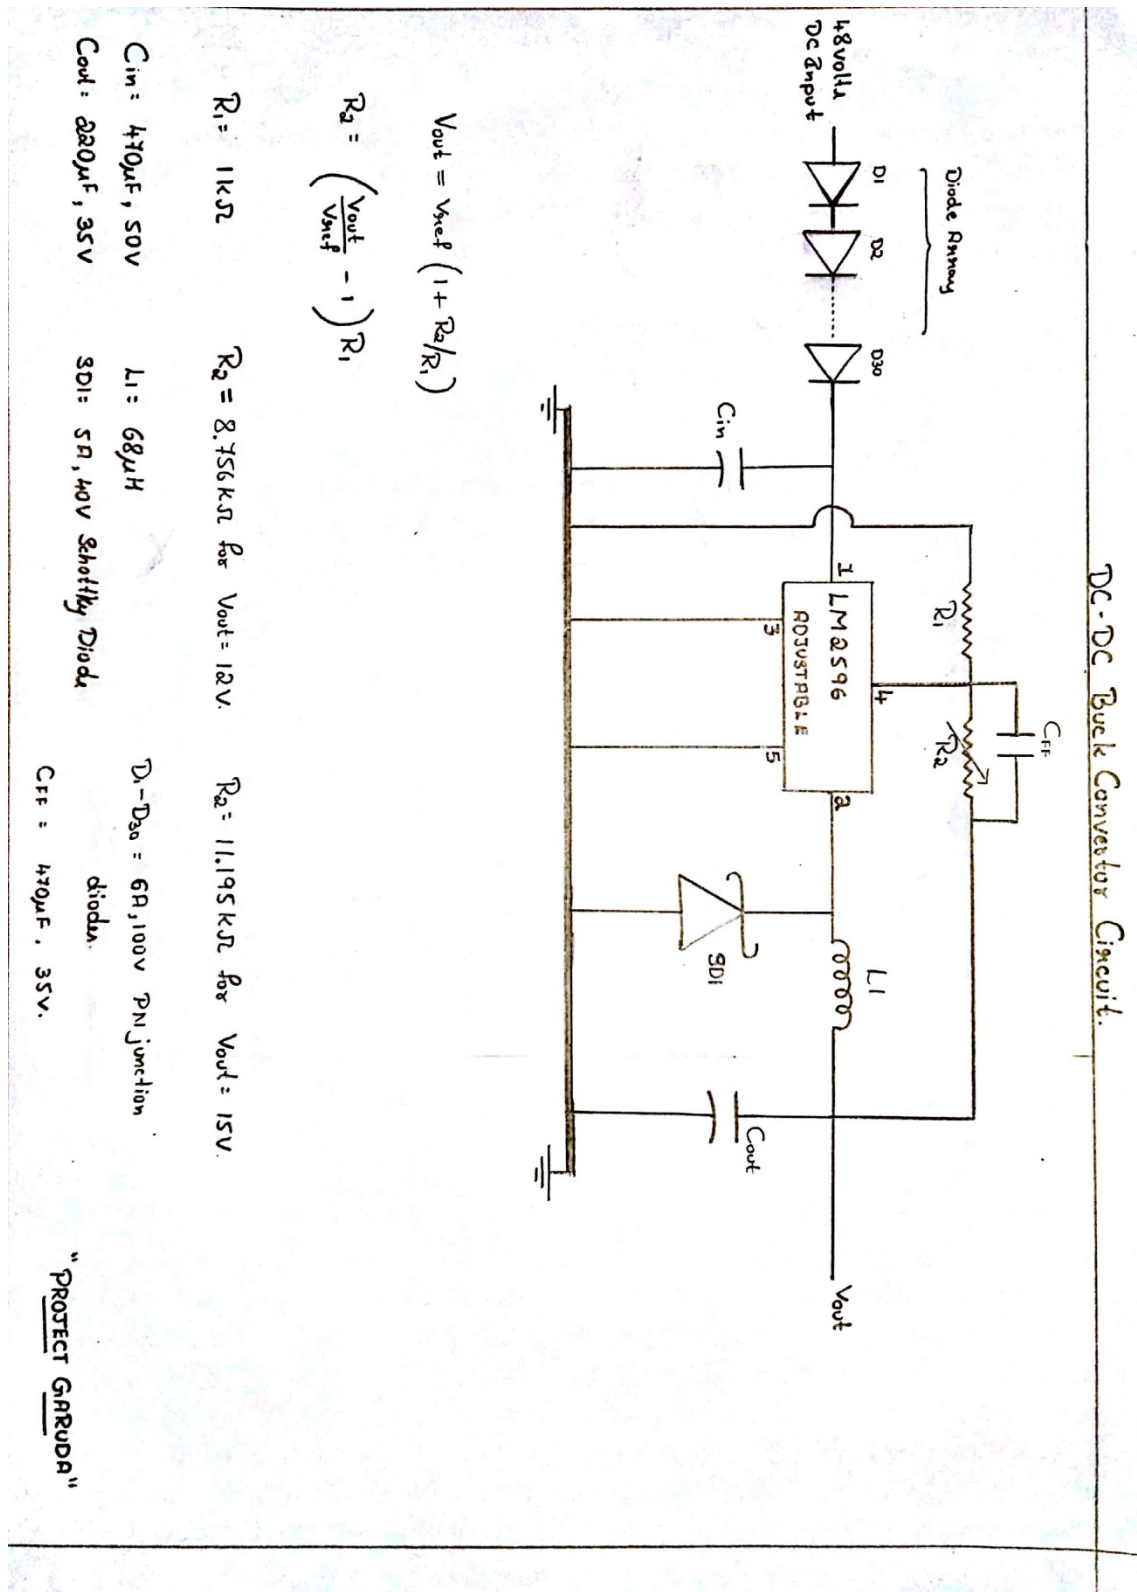 DC-DC Buck Convertor Circuit.
Diode Array
D1
D2
D30
48 volts
DC Input
Cin
R1
R2
CFF
1
LM2596
ADJUSTABLE
4
3
5
2
L1
SD1
Cout
Vout
Vout = Vref (1 + R2/R1)
R2 = (Vout/Vref - 1) R1
R1 = 1kΩ
R2 = 8.756kΩ for Vout = 12V.
R2 = 11.195kΩ for Vout = 15V.
Cin = 470µF, 50V
L1 = 68µH
D1-D30 = 6A, 100V PN junction
diodes.
Cout = 220µF, 35V
SD1 = 5A, 40V Schottky Diode
CFF = 470µF, 35V.
"PROJECT GARUDA"